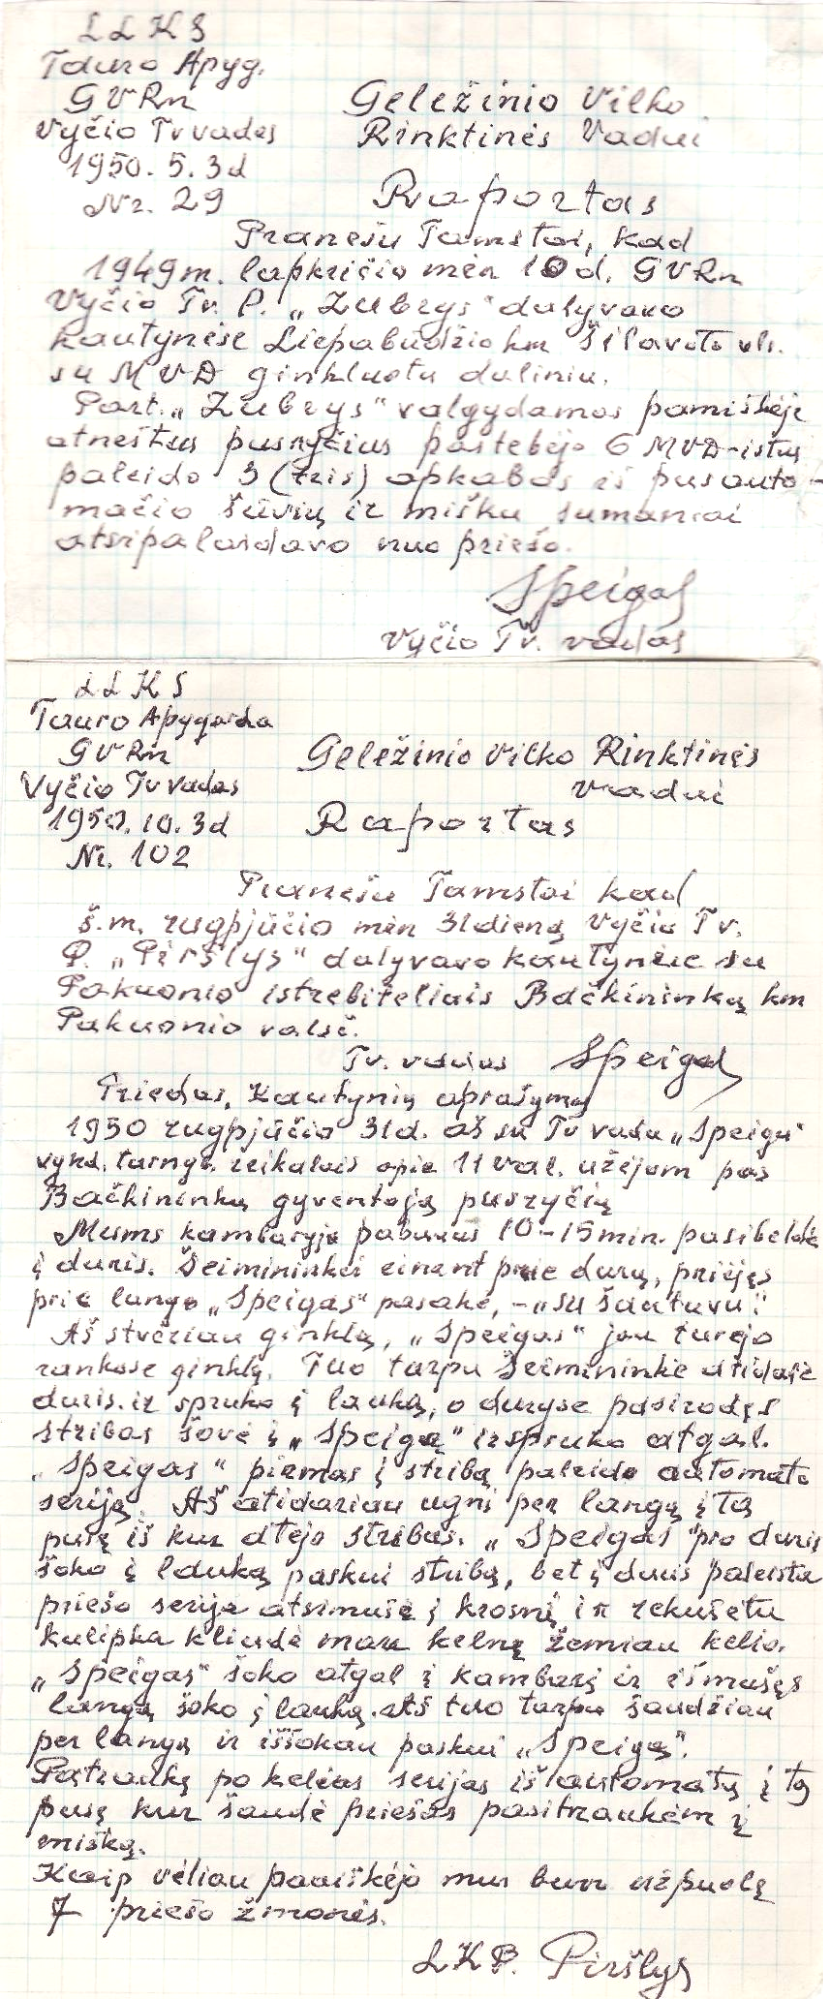 LLKS
Tauro Apyg.
GVRn
Vyčio Tvvadas
1950. 5. 3d
Nr. 29
Geležinio Vilko
Rinktinės Vadui
Raportas
Pranešu Tamstai, kad
1949m. lapkričio mėn 10d. GVRn
Vyčio Tv. P. „Zubrys" dalyvavo
kautynėse Liepabūdžio km Šilavoto vls.
su MVD ginkluotu daliniu.
Part. „Zubrys" valgydamas pamiškėje
atneštus pusryčius pastebėjo 6 MVD-istus
paleido 3 (tris) apkabas iš pusauto-
mačio šūvių ir mišku sumaniai
atsipalaidavo nuo priešo.
Speigas
Vyčio Tv. vadas
LLKS
Tauro Apygarda
GVRn
Vyčio Tvvadas
1950. 10. 3d
Nr. 102
Geležinio Vilko Rinktinės
vadui
Raportas
Pranešu Tamstai kad
š.m. rugpjūčio mėn 31dieną Vyčio Tv.
P. „Piršlys" dalyvavo kautynėse su
Pakuonio istrebiteliais Bačkininkų km
Pakuonio valsč.
Tv. vadas Speigas
Priedas, Kautynių aprašymas
1950 rugpjūčio 31d. aš su Tv vadu „Speigu"
vykd. tarnyb. reikalais apie 11 val. užėjom pas
Bačkininkų gyventoją pusryčių
Mums kambaryje pabuvus 10-15min. pasibeldė
į duris. Šeimininkei einant prie durų, priėjęs
prie lango „Speigas" pasakė, -„su šautuvu".
Aš stvėriau ginklą, „Speigas" jau turėjo
rankose ginklą. Tuo tarpu šeimininkė atidarė
duris ir spruko į lauką, o duryse pasirodęs
stribas šovė į „Speigą" ir spruko atgal.
„Speigas" pirmas į stribą paleido automato
seriją. Aš atidariau ugnį per langą į tą
pusę iš kur atėjo stribas. „Speigas" pro duris
šoko į lauką paskui stribą, bet į duris paleista
priešo serija atsimušė į krosnį ir rekušetu
kulipka kliudė man kelnę žemiau kelio.
„Speigas" šoko atgal į kambarį ir išmušęs
langą šoko į lauką. Aš tuo tarpu šaudžiau
per langą ir iššokau paskui „Speigą".
Patraukę po kelias serijas iš automatų į tą
pusę kur šaudė priešas pasitraukėm į
mišką.
Kaip vėliau paaiškėjo mus buvo užpuolę
7 priešo žmonės.
LKP. Piršlys